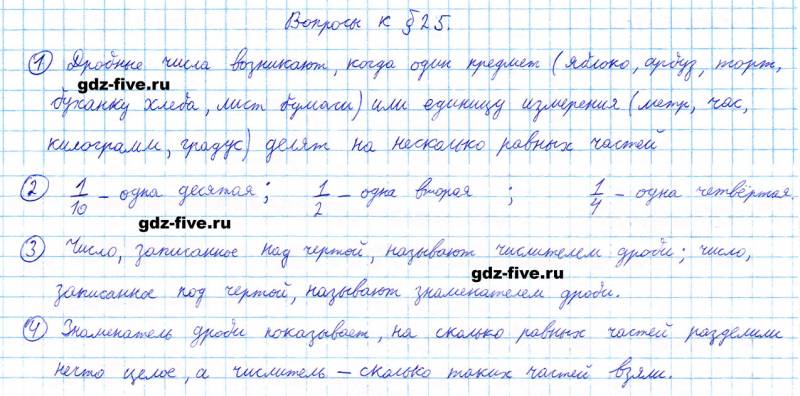 Вопросы к § 25.
1 Дробные числа возникают, когда один предмет (яблоко, арбуз, торт,
gdz-five.ru
буханку хлеба, лист бумаги) или единицу измерения (метр, час,
килограмм, градус) делят на несколько равных частей
2 1/10 – одна десятая; 1/2 – одна вторая ; 1/4 – одна четвёртая.
gdz-five.ru
3 Число, записанное над чертой, называют числителем дроби; число,
gdz-five.ru
записанное под чертой, называют знаменателем дроби.
4 Знаменатель дроби показывает, на сколько равных частей разделили
нечто целое, а числитель – сколько таких частей взяли.